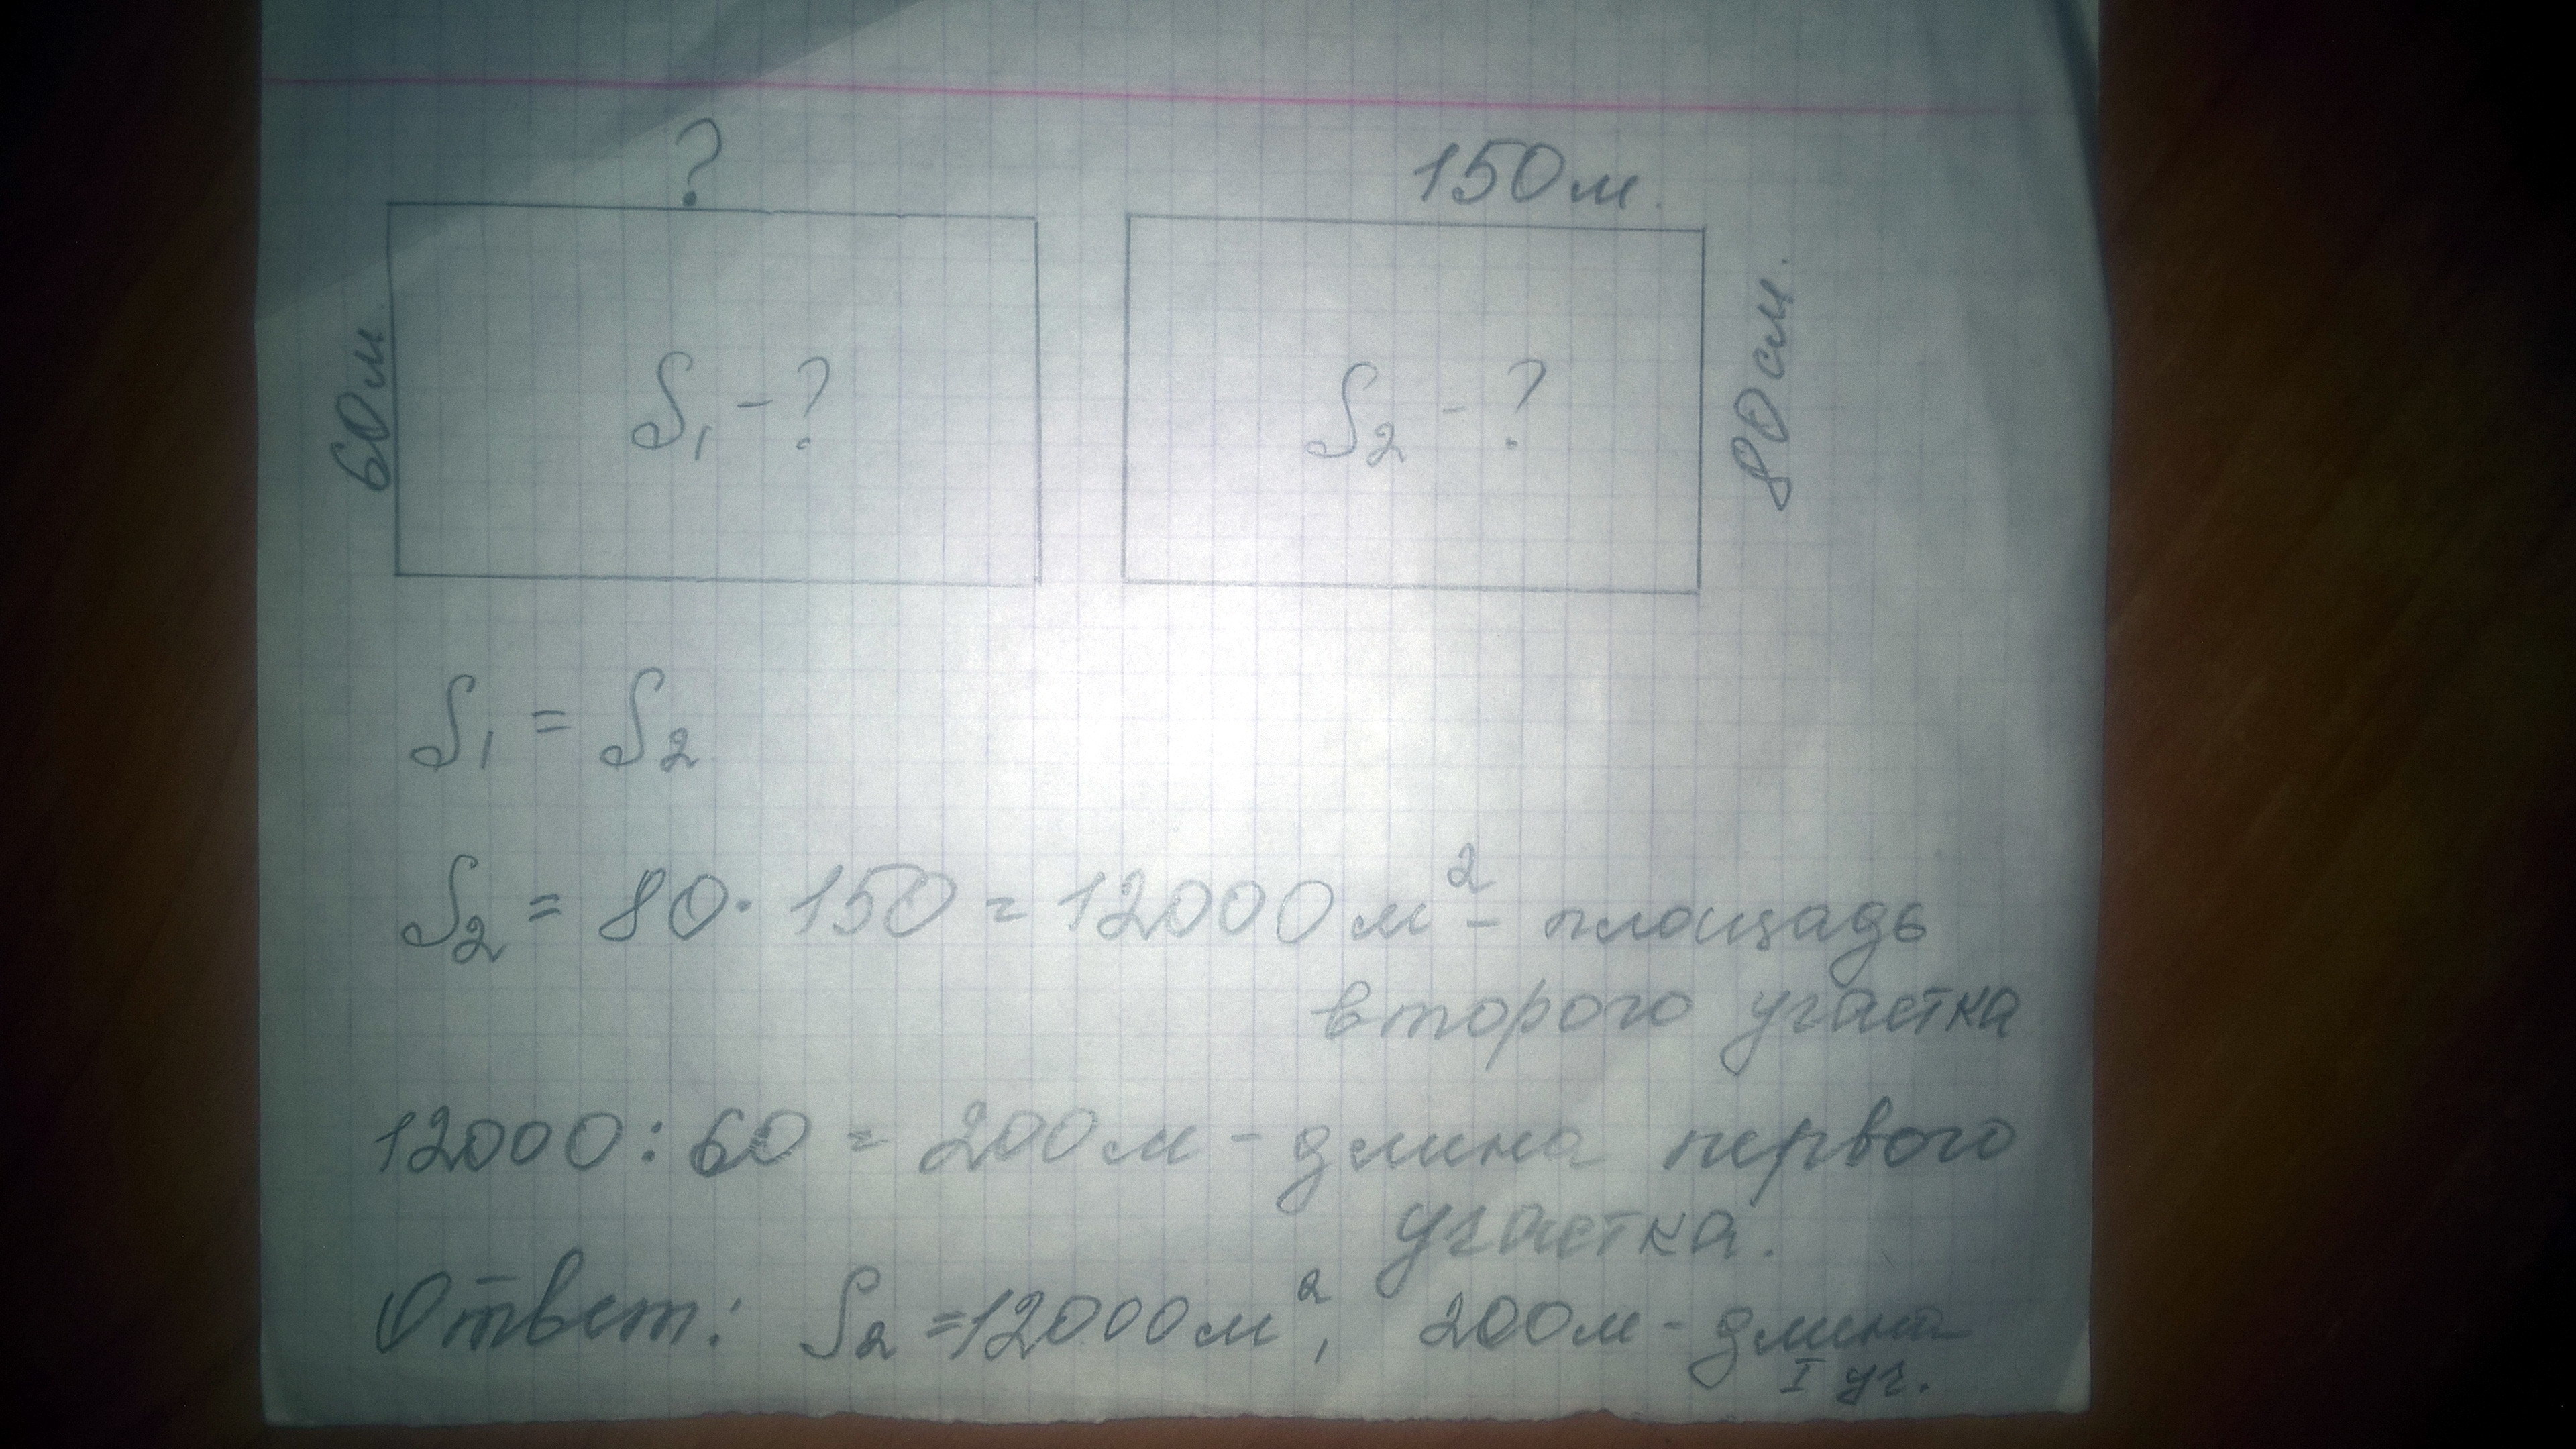 ?
150м.
60м.
S₁ - ?
S₂ - ?
80см.
S₁ = S₂
S₂ = 80 · 150 = 12000м² - площадь
второго участка
12000 : 60 = 200м - длина первого
участка.
Ответ: S₂ = 12000м², 200м - длина
I уч.